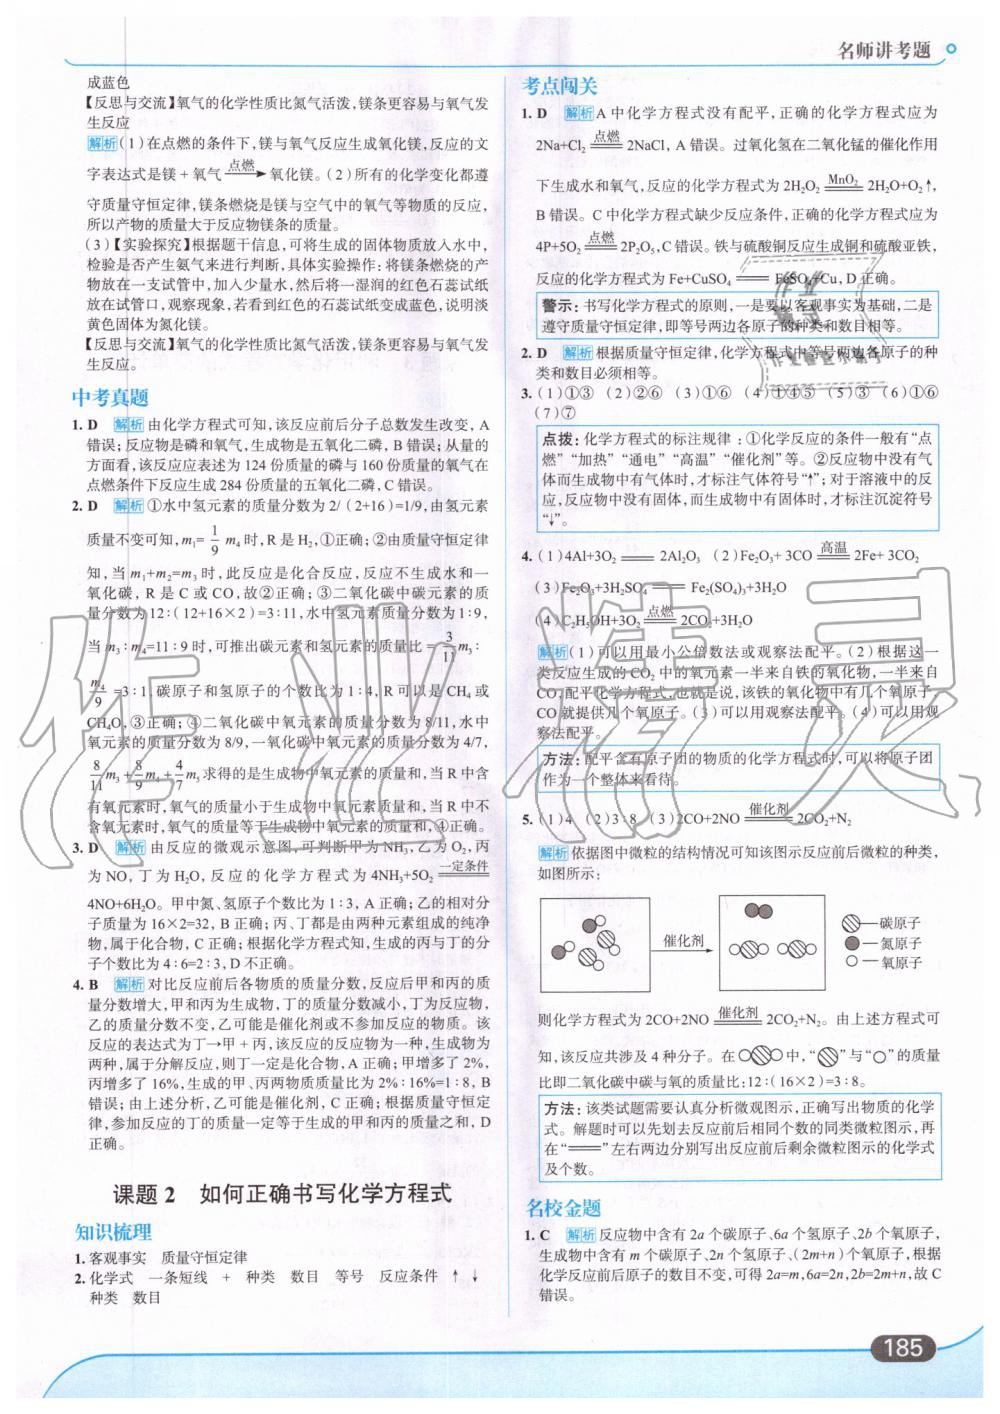 名师讲考题
成蓝色
【反思与交流】氧气的化学性质比氮气活泼,镁条更容易与氧气发
生反应
解析(1)在点燃的条件下,镁与氧气反应生成氧化镁,反应的文
字表达式是镁+氧气 点燃→ 氧化镁。(2)所有的化学变化都遵
守质量守恒定律,镁条燃烧是镁与空气中的氧气等物质的反应,
所以产物的质量大于反应物镁条的质量。
(3)【实验探究】根据题干信息,可将生成的固体物质放入水中,
检验是否产生氨气来进行判断,具体实验操作:将镁条燃烧的产
物放在一支试管中,加入少量水,然后将一湿润的红色石蕊试纸
放在试管口,观察现象,若看到红色的石蕊试纸变成蓝色,说明淡
黄色固体为氮化镁。
【反思与交流】氧气的化学性质比氮气活泼,镁条更容易与氧气发
生反应。
中考真题
1. D 解析 由化学方程式可知,该反应前后分子总数发生改变, A
错误;反应物是磷和氧气,生成物是五氧化二磷, B 错误;从量的
方面看,该反应应表述为 124 份质量的磷与 160 份质量的氧气在
点燃条件下反应生成 284 份质量的五氧化二磷, C 错误。
2. D 解析 ①水中氢元素的质量分数为 2/ (2+16)=1/9,由氢元素
质量不变可知, m₁= 1/9 m₄ 时, R 是 H₂,①正确;②由质量守恒定律
知, 当 m₁+m₂=m₃ 时, 此反应是化合反应, 反应不生成水和一
氧化碳, R 是 C 或 CO, 故②正确; ③二氧化碳中碳元素的质
量分数为 12∶(12+16×2)=3∶11, 水中氢元素质量分数为 1∶9,
当 m₃∶m₄=11∶9 时,可推出碳元素和氢元素的质量比 = 3/11 m₃∶
m₄/9 =3∶1, 碳原子和氢原子的个数比为 1∶4, R 可以是 CH₄ 或
CH₄O, ③正确;④二氧化碳中氧元素的质量分数为 8/11, 水中
氧元素的质量分数为 8/9, 一氧化碳中氧元素的质量分数为 4/7,
8/11 m₃+8/9 m₄+4/7 m₅ 求得的是生成物中氧元素的质量和, 当 R 中含
有氧元素时, 氧气的质量小于生成物中氧元素的质量和, 当 R 中不
含氧元素时,氧气的质量等于生成物中氧元素的质量和,④正确。
3. D 解析 由反应的微观示意图,可判断甲为 NH₃, 乙为 O₂, 丙
为 NO, 丁为 H₂O, 反应的化学方程式为 4NH₃+5O₂ 一定条件═══
4NO+6H₂O。甲中氮、氢原子个数比为 1∶3, A 正确;乙的相对分
子质量为 16×2=32, B 正确;丙、丁都是由两种元素组成的纯净
物,属于化合物, C 正确;根据化学方程式知,生成的丙与丁的分
子个数比为 4∶6=2∶3, D 不正确。
4. B 解析 对比反应前后各物质的质量分数,反应后甲和丙的质
量分数增大,甲和丙为生成物,丁的质量分数减小,丁为反应物,
乙的质量分数不变,乙可能是催化剂或不参加反应的物质。该
反应的表达式为丁→甲 + 丙,该反应的反应物为一种,生成物为
两种,属于分解反应,则丁一定是化合物, A 正确;甲增多了 2%,
丙增多了 16%,生成的甲、丙两物质质量比为 2%∶16%=1∶8, B
错误;由上述分析,乙可能是催化剂, C 正确;根据质量守恒定
律,参加反应的丁的质量一定等于生成的甲和丙的质量之和, D
正确。
课题 2 如何正确书写化学方程式
知识梳理
1. 客观事实 质量守恒定律
2. 化学式 一条短线 + 种类 数目 等号 反应条件 ↑ ↓
种类 数目
考点闯关
1. D 解析 A 中化学方程式没有配平,正确的化学方程式应为
2Na+Cl₂ 点燃═══ 2NaCl, A 错误。过氧化氢在二氧化锰的催化作用
下生成水和氧气,反应的化学方程式为 2H₂O₂ MnO₂═══ 2H₂O+O₂↑,
B 错误。C 中化学方程式缺少反应条件,正确的化学方程式应为
4P+5O₂ 点燃═══ 2P₂O₅, C 错误。铁与硫酸铜反应生成铜和硫酸亚铁,
反应的化学方程式为 Fe+CuSO₄ ═══ FeSO₄+Cu, D 正确。
警示: 书写化学方程式的原则,一是要以客观事实为基础,二是
遵守质量守恒定律,即等号两边各原子的种类和数目相等。
2. D 解析 根据质量守恒定律,化学方程式中等号两边各原子的种
类和数目必须相等。
3. (1)①③ (2)②⑥ (3)①⑥ (4)①④⑤ (5)③ (6)①⑥
(7)⑦
点拨: 化学方程式的标注规律 :①化学反应的条件一般有“点
燃”“加热”“通电”“高温”“催化剂”等。②反应物中没有气
体而生成物中有气体时,才标注气体符号“↑”; 对于溶液中的反
应,反应物中没有固体,而生成物中有固体时,才标注沉淀符号
“↓”。
4. (1)4Al+3O₂ ═══ 2Al₂O₃ (2)Fe₂O₃+ 3CO 高温═══ 2Fe+ 3CO₂
(3)Fe₂O₃+3H₂SO₄ ═══ Fe₂(SO₄)₃+3H₂O
(4)C₂H₅OH+3O₂ 点燃═══ 2CO₂+3H₂O
解析(1)可以用最小公倍数法或观察法配平。(2)根据这一
类反应生成的 CO₂ 中的氧元素一半来自铁的氧化物,一半来自
CO,配平化学方程式,也就是说,该铁的氧化物中有几个氧原子,
CO 就提供几个氧原子。(3)可以用观察法配平。(4)可以用观
察法配平。
方法: 配平含有原子团的物质的化学方程式时,可以将原子团
作为一个整体来看待。
5. (1)4 (2)3∶8 (3)2CO+2NO 催化剂═══ 2CO₂+N₂
解析 依据图中微粒的结构情况可知该图示反应前后微粒的种类,
如图所示:
催化剂
碳原子
氮原子
氧原子
则化学方程式为 2CO+2NO 催化剂═══ 2CO₂+N₂。由上述方程式可
知,该反应共涉及 4 种分子。在 中,“ ”与“○”的质量
比即二氧化碳中碳与氧的质量比:12∶(16×2)=3∶8。
方法: 该类试题需要认真分析微观图示,正确写出物质的化学
式。解题时可以先划去反应前后相同个数的同类微粒图示,再
在“═══”左右两边分别写出反应前后剩余微粒图示的化学式
及个数。
名校金题
1. C 解析 反应物中含有 2a 个碳原子、6a 个氢原子、2b 个氧原子,
生成物中含有 m 个碳原子、2n 个氢原子、(2m+n)个氧原子,根据
化学反应前后原子的数目不变,可得 2a=m, 6a=2n, 2b=2m+n, 故 C
错误。
185
作业精灵